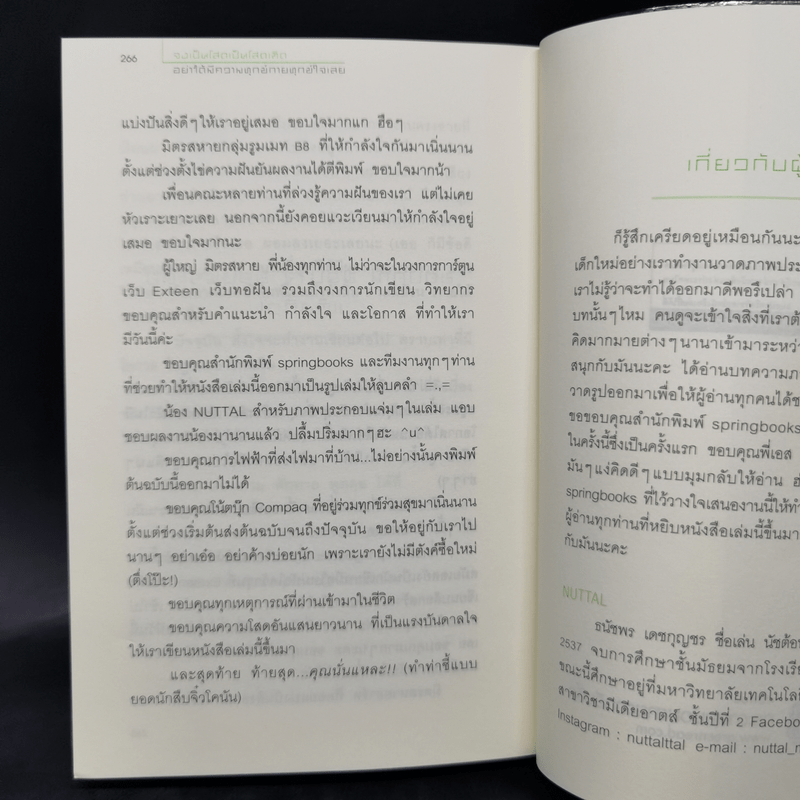 266
อย่าได้มีความทุกข์กายทุกข์ใจเลย
แบ่งปันสิ่งดีๆ ให้เราอยู่เสมอ ขอบใจมากแก ฮือๆ
มิตรสหายกลุ่มรูมเมท B8 ที่ให้กำลังใจกันมาเนิ่นนาน
ตั้งแต่ช่วงตั้งไข่ความฝันยันผลงานได้ตีพิมพ์ ขอบใจมากน้า
เพื่อนคณะหลายท่านที่ล่วงรู้ความฝันของเรา แต่ไม่เคย
หัวเราะเยาะเลย นอกจากนี้ยังคอยแวะเวียนมาให้กำลังใจอยู่
เสมอ ขอบใจมากนะ
ผู้ใหญ่ มิตรสหาย พี่น้องทุกท่าน ไม่ว่าจะในวงการการ์ตูน
เว็บ Exteen เว็บทอฝัน รวมถึงวงการนักเขียน วิทยากร
ขอบคุณสำหรับคำแนะนำ กำลังใจ และโอกาส ที่ทำให้เรา
มีวันนี้ค่ะ
ขอบคุณสำนักพิมพ์ springbooks และทีมงานทุกๆ ท่าน
ที่ช่วยทำให้หนังสือเล่มนี้ออกมาเป็นรูปเล่มให้ลูบคลำ =.,=
น้อง NUTTAL สำหรับภาพประกอบแจ่มๆ ในเล่ม แอบ
ชอบผลงานน้องมานานแล้ว ปลื้มปริ่มมากๆ ฮะ ^u^
ขอบคุณการไฟฟ้าที่ส่งไฟมาที่บ้าน...ไม่อย่างนั้นคงพิมพ์
ต้นฉบับนี้ออกมาไม่ได้
ขอบคุณโน้ตบุ๊ก Compaq ที่อยู่ร่วมทุกข์ร่วมสุขมาเนิ่นนาน
ตั้งแต่ช่วงเริ่มต้นส่งต้นฉบับจนถึงปัจจุบัน ขอให้อยู่กับเราไป
นานๆ อย่าเอ๋อ อย่าค้างบ่อยนัก เพราะเรายังไม่มีตังค์ซื้อใหม่
(ตึ่งโป๊ะ!)
ขอบคุณทุกเหตุการณ์ที่ผ่านเข้ามาในชีวิต
ขอบคุณความโสดอันแสนยาวนาน ที่เป็นแรงบันดาลใจ
ให้เราเขียนหนังสือเล่มนี้ขึ้นมา
และสุดท้าย ท้ายสุด...คุณนั่นแหละ!! (ทำท่าชี้แบบ
ยอดนักสืบจิ๋วโคนัน)
เกี่ยวกับผู้
ก็รู้สึกเครียดอยู่เหมือนกันนะ
เด็กใหม่อย่างเราทำงานวาดภาพประ
เราไม่รู้ว่าจะทำได้ออกมาดีพอรึเปล่า
บทนั้นๆ ไหม คนดูจะเข้าใจสิ่งที่เราต้
คิดมากมายต่างๆ นานาเข้ามาระหว่า
สนุกกับมันนะคะ ได้อ่านบทความภ
วาดรูปออกมาเพื่อให้ผู้อ่านทุกคนได้ช
ขอขอบคุณสำนักพิมพ์ springbooks
ในครั้งนี้ซึ่งเป็นครั้งแรก ขอบคุณพี่เอส
มันๆ แง่คิดดีๆ แบบมุมกลับให้อ่าน ฮ่
springbooks ที่ไว้วางใจเสนองานนี้ให้ทำ
ผู้อ่านทุกท่านที่หยิบหนังสือเล่มนี้ขึ้นมา
กับมันนะคะ
NUTTAL
ธนัชพร เดชกุญชร ชื่อเล่น นัชต้อ
2537 จบการศึกษาชั้นมัธยมจากโรงเรีย
ขณะนี้ศึกษาอยู่ที่มหาวิทยาลัยเทคโนโลยี
สาขาวิชามีเดียอาตส์ ชั้นปีที่ 2 Facebo
Instagram : nuttalttal e-mail : nuttal_n